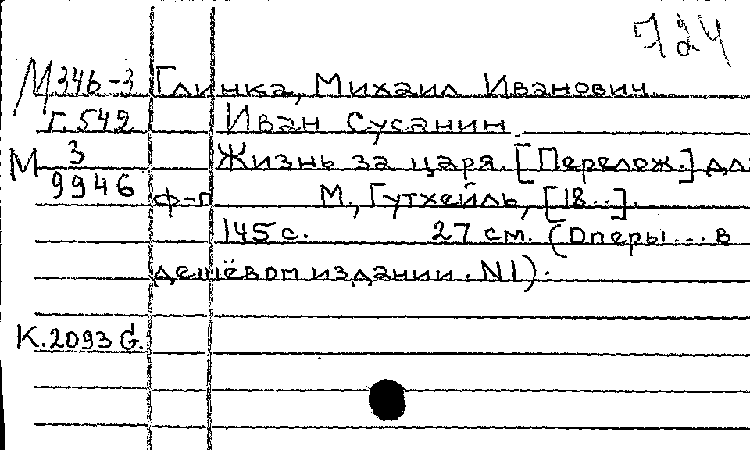 724
М 346-3 Глинка, Михаил Иванович
Г.542 Иван Сусанин.
М 3 Жизнь за царя. [Перелож.] для
9946 ф-п М., Гутхейль, [18..].
145 с. 27 см. (Оперы... в
дешёвом издании. N1).
К.2093 G.